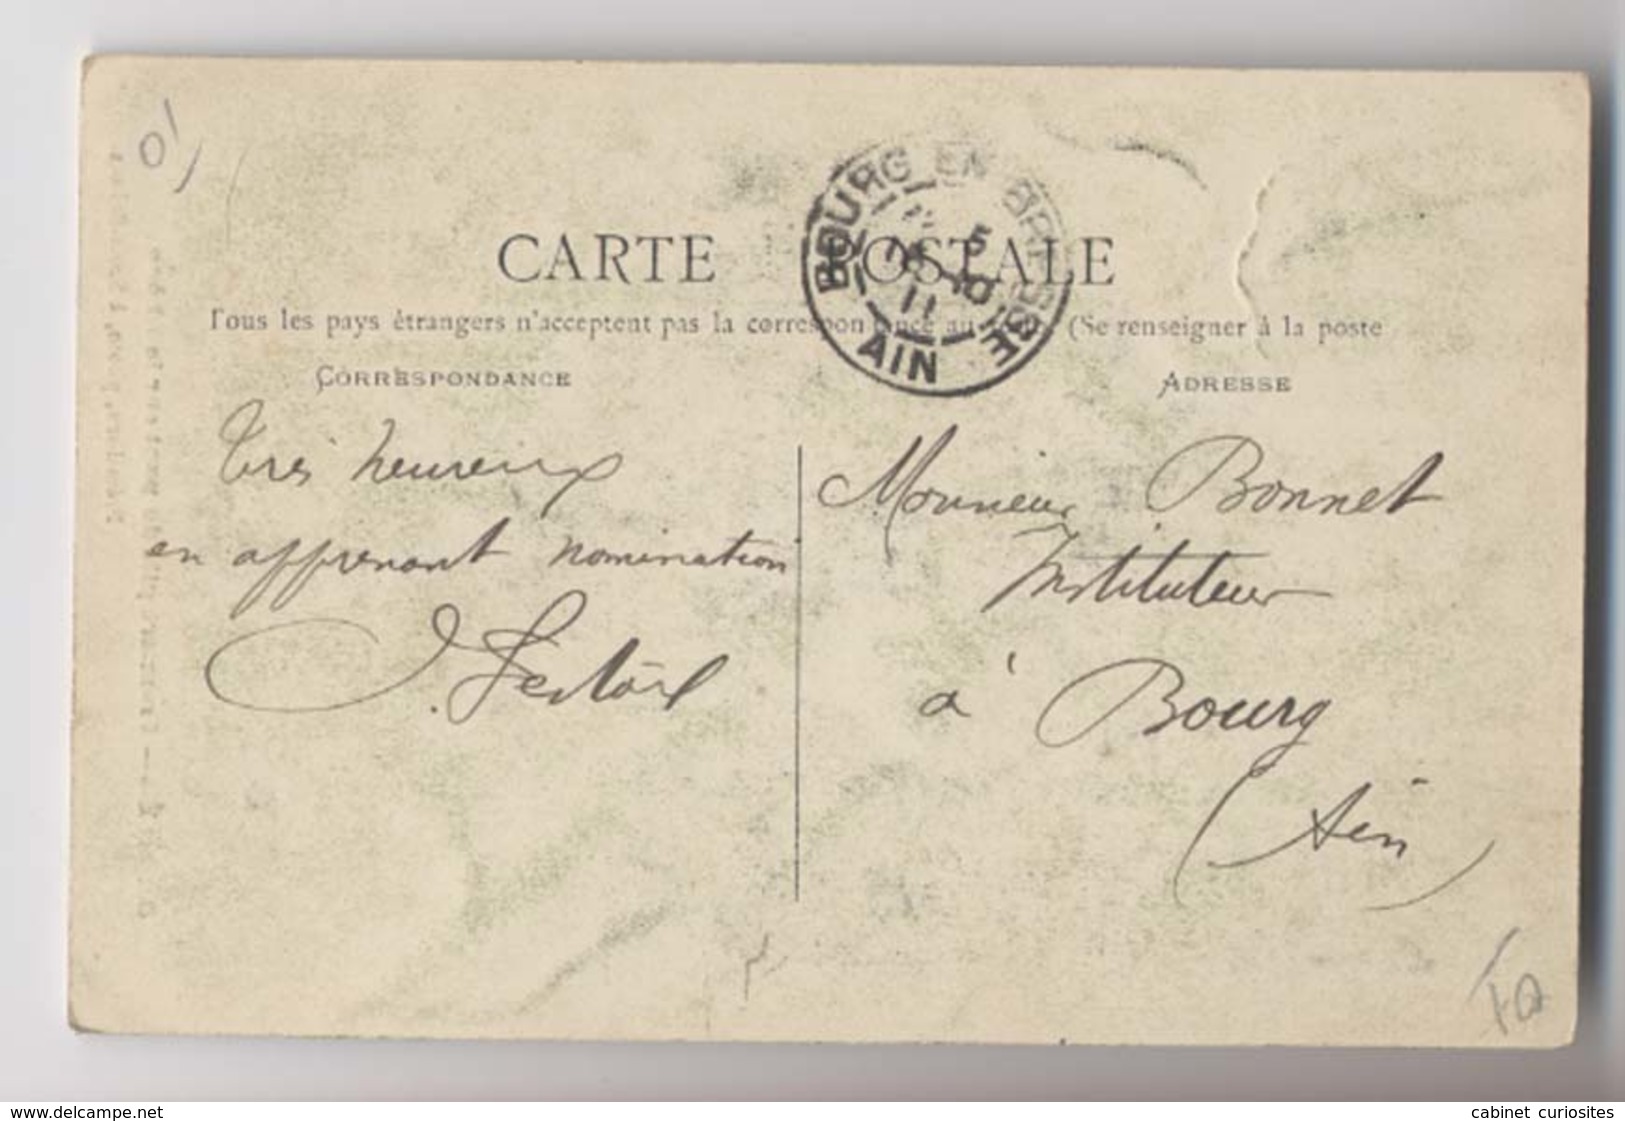 CARTE POSTALE
Tous les pays étrangers n'acceptent pas la correspondance au (Se renseigner à la poste
CORRESPONDANCE
ADRESSE
BOURG EN BRESSE
AIN
11
Très heureux
en apprenant nomination
Monsieur Bonnet
Instituteur
à Bourg
(Ain)
01
www.delcampe.net
cabinet curiosites